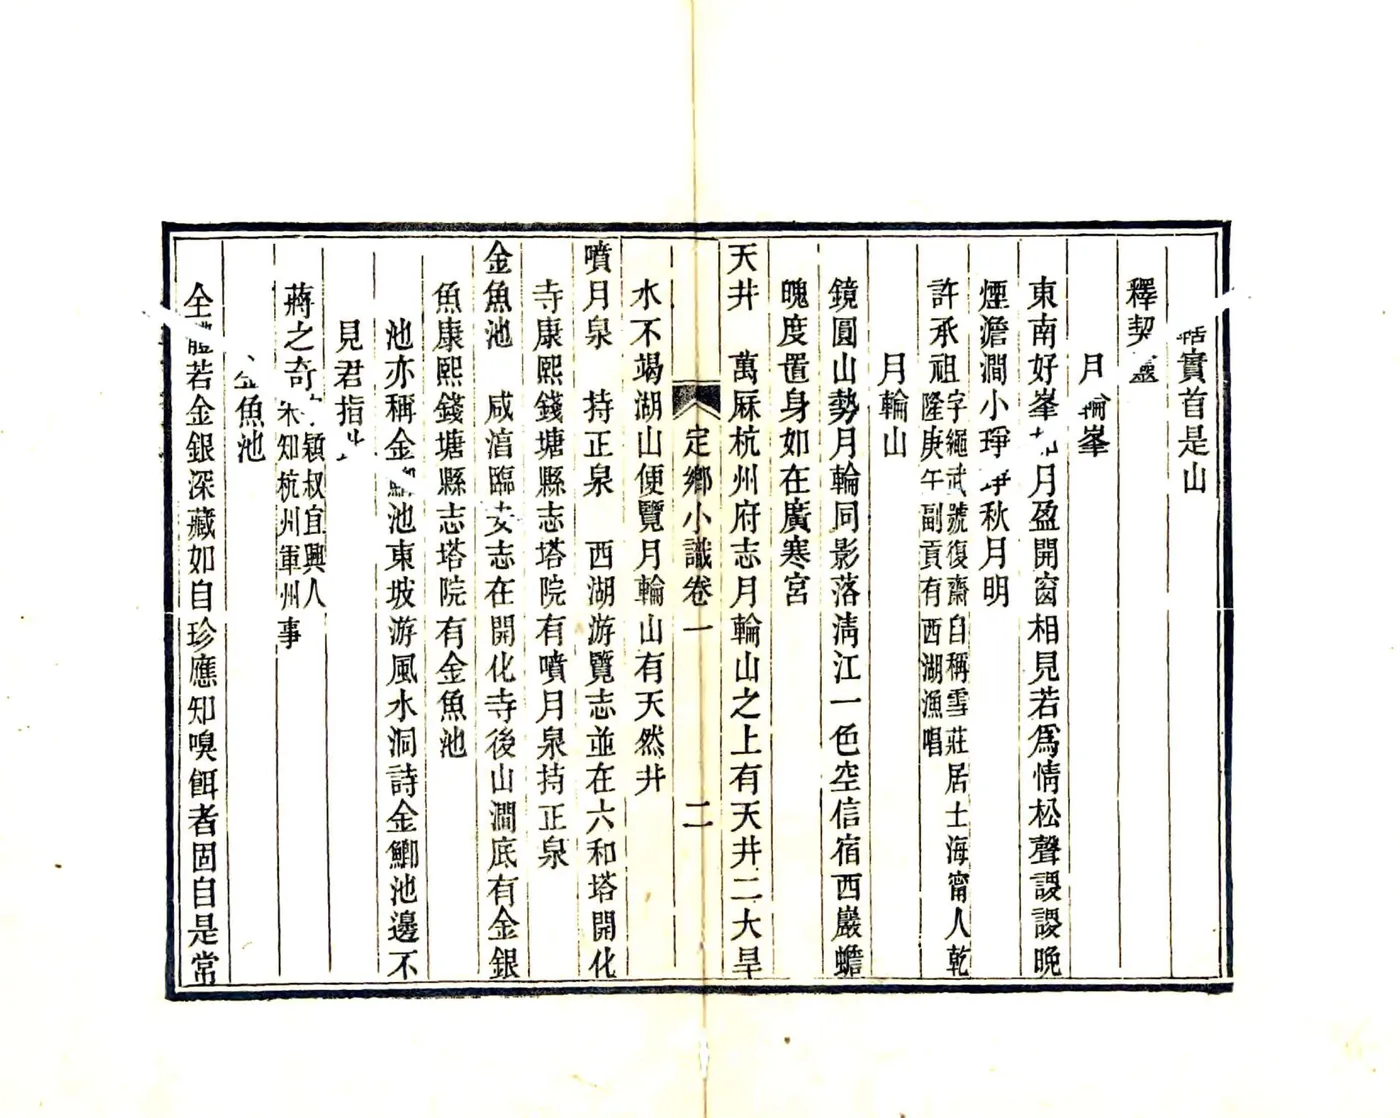 實首是山
釋契
月輪峯
東南好峯 月盈開窗相見若爲情松聲謖謖晚
煙澹澗小琤琤秋月明
許承祖字繩武號復齋自稱雪莊居士海甯人乾
隆庚午副貢有西湖漁唱
月輪山
鏡圓山勢月輪同影落淸江一色空信宿西巖蟾
魄度置身如在廣寒宮
天井　萬厤杭州府志月輪山之上有天井二大旱
定鄉小識卷一　二
水不竭湖山便覽月輪山有天然井
噴月泉　持正泉　西湖游覽志並在六和塔開化
寺康熙錢塘縣志塔院有噴月泉持正泉
金魚池　咸淳臨安志在開化寺後山澗底有金銀
魚康熙錢塘縣志塔院有金魚池
池亦稱金鯽池東坡游風水洞詩金鯽池邊不
見君指
蔣之奇 穎叔宜興人
宋知杭州軍州事
金魚池
全體若金銀深藏如自珍應知嗅餌者固自是常